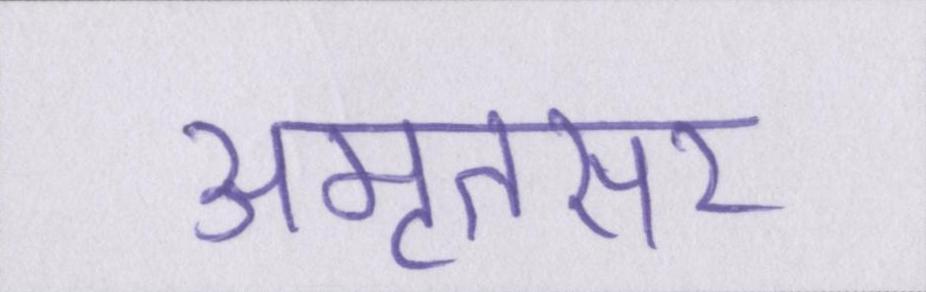 अमृतसर